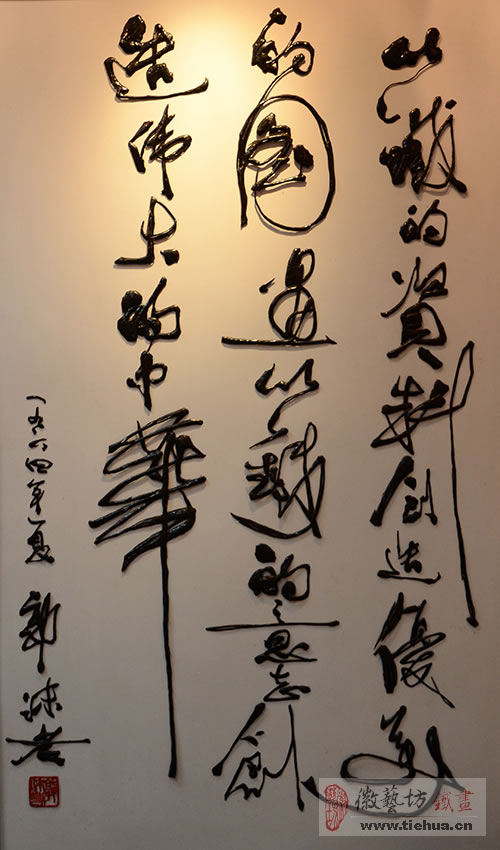 以鐵的資料创造優美
的圖畫以鐵的意志創
造伟大的中華
一九六四年夏 郭沫若
徽藝坊鐵畫
www.tiehua.cn